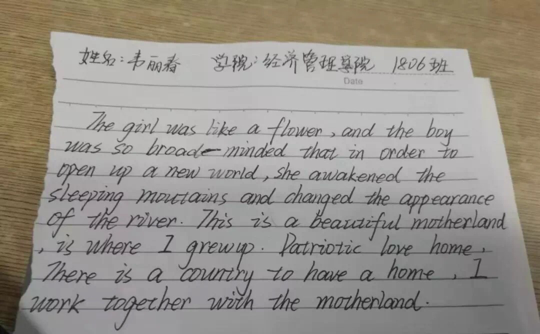 姓名:韦丽春 学院:经济管理学院 1806班
Date
The girl was like a flower, and the boy
was so broad-minded that in order to
open up a new world, she awakened the
sleeping mountains and changed the appearance
of the river. This is a beautiful motherland
, is where I grewup. Patriotic love home,
There is a country to have a home, I
work together with the motherland.